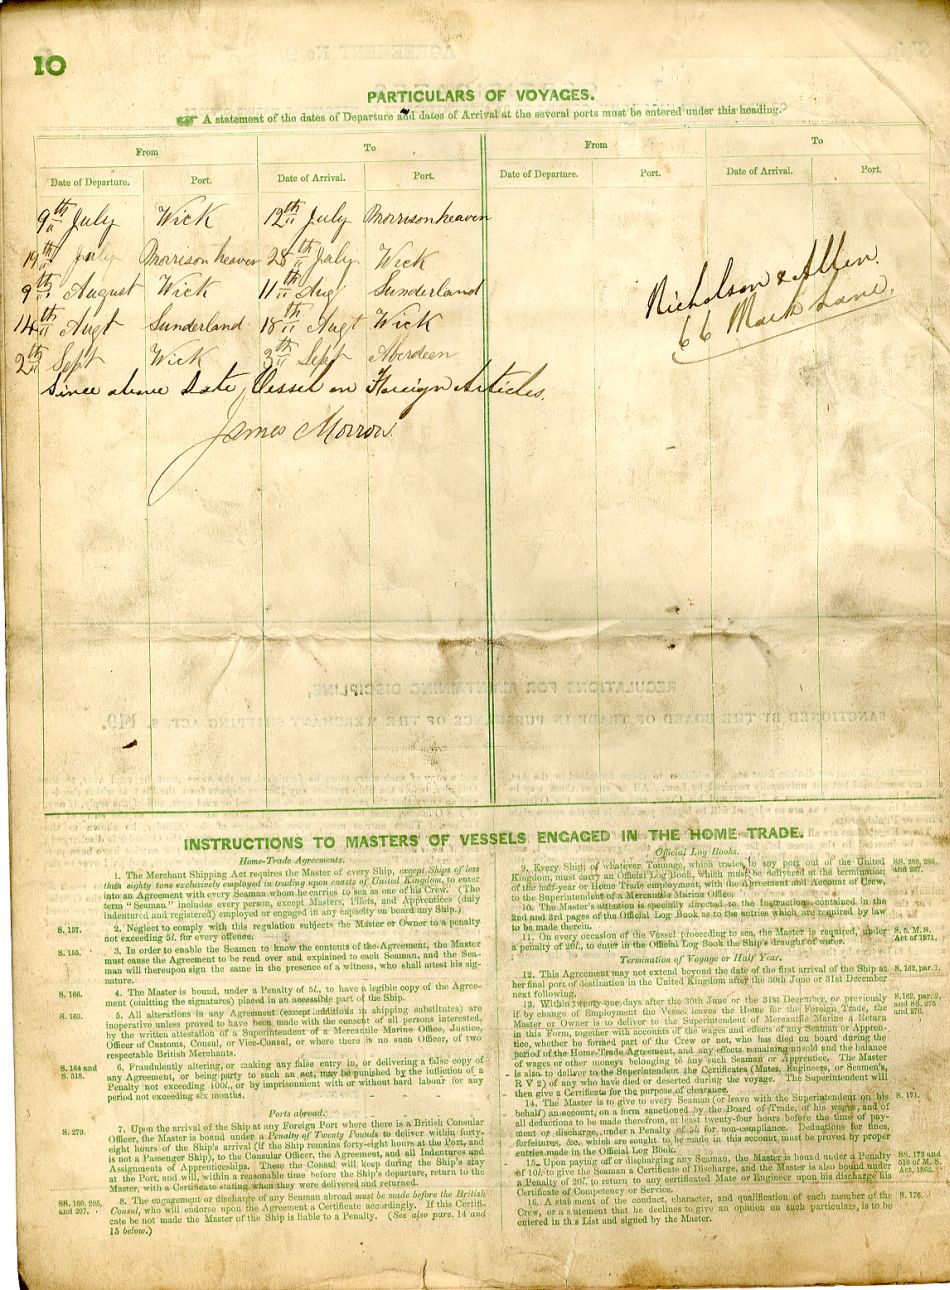 10
PARTICULARS OF VOYAGES.
A statement of the dates of Departure and dates of Arrival at the several ports must be entered under this heading.
From To From To
Date of Departure. Port. Date of Arrival. Port. Date of Departure. Port. Date of Arrival. Port.
9th July Wick 12th July Morrisonheaven
19th July Morrison heaven 28th July Wick
9th August Wick 11th Aug Sunderland
14th Augt Sunderland 18th Augt Wick
2th Sept Wick 3th Sept Aberdeen
Since above Date, Vessel on Foreign Articles.
James Morrow
Nicholson & Allen.
66 Mark Lane.
INSTRUCTIONS TO MASTERS OF VESSELS ENGAGED IN THE HOME TRADE.
Home-Trade Agreements.
1. The Merchant Shipping Act requires the Master of every Ship, except Ships of less
than eighty tons exclusively employed in trading upon coasts of United Kingdom, to enter
into an Agreement with every Seaman whom he carries to sea as one of his Crew. (The
term "Seaman" includes every person, except Masters, Pilots, and Apprentices (duly
indentured and registered) employed or engaged in any capacity on board any Ship.)
S. 157.
2. Neglect to comply with this regulation subjects the Master or Owner to a penalty
not exceeding 5l. for every offence.
S. 155.
3. In order to enable the Seamen to know the contents of the Agreement, the Master
must cause the Agreement to be read over and explained to each Seaman, and the Sea-
man will thereupon sign the same in the presence of a witness, who shall attest his sig-
nature.
S. 166.
4. The Master is bound, under a Penalty of 5l., to have a legible copy of the Agree-
ment (omitting the signatures) placed in an accessible part of the Ship.
S. 163.
5. All alterations in any Agreement (except additions in shipping substitutes) are
inoperative unless proved to have been made with the consent of all persons interested,
by the written attestation of a Superintendent of a Mercantile Marine Office, Justice,
Officer of Customs, Consul, or Vice-Consul, or where there is no such Officer, of two
respectable British Merchants.
S. 164 and
S. 518.
6. Fraudulently altering, or making any false entry in, or delivering a false copy of
any Agreement, or being party to such an act, may be punished by the infliction of a
Penalty not exceeding 100l., or by imprisonment with or without hard labour for any
period not exceeding six months.
Ports abroad.
S. 279.
7. Upon the arrival of the Ship at any Foreign Port where there is a British Consular
Officer, the Master is bound under a Penalty of Twenty Pounds to deliver within forty-
eight hours of the Ship's arrival (if the Ship remains forty-eight hours at the Port, and
is not a Passenger Ship), to the Consular Officer, the Agreement, and all Indentures and
Assignments of Apprenticeships. These the Consul will keep during the Ship's stay
at the Port, and will, within a reasonable time before the Ship's departure, return to the
Master, with a Certificate stating when they were delivered and returned.
SS. 160, 205,
and 207.
8. The engagement or discharge of any Seaman abroad must be made before the British
Consul, who will endorse upon the Agreement a Certificate accordingly. If this Certifi-
cate be not made the Master of the Ship is liable to a Penalty. (See also pars. 14 and
15 below.)
Official Log Books.
9. Every Ship, of whatever Tonnage, which trades to any port out of the United
Kingdom, must carry an Official Log Book, which must be delivered at the termination
of the half-year or Home Trade employment, with the Agreement and Account of Crew,
to the Superintendent of a Mercantile Marine Office.
SS. 280, 284,
and 287.
10. The Master's attention is specially directed to the Instructions contained in the
2nd and 3rd pages of the Official Log Book as to the entries which are required by law
to be made therein.
11. On every occasion of the Vessel proceeding to sea, the Master is required, under
a penalty of 20l., to enter in the Official Log Book the Ship's draught of water.
S. 5. M. S.
Act of 1871.
Termination of Voyage or Half Year.
12. This Agreement may not extend beyond the date of the first arrival of the Ship at
her final port of destination in the United Kingdom after the 30th June or 31st December
next following.
S. 162, par. 1.
13. Within twenty-one days after the 30th June or the 31st December, or previously
if by change of Employment the Vessel leaves the Home for the Foreign Trade, the
Master or Owner is to deliver to the Superintendent of Mercantile Marine a Return
in this Form, together with accounts of the wages and effects of any Seaman or Appren-
tice, whether he formed part of the Crew or not, who has died on board during the
period of the Home-Trade Agreement, and any effects remaining unsold and the balance
of wages or other moneys belonging to any such Seaman or Apprentice. The Master
is also to deliver to the Superintendent the Certificates (Mates, Engineers, or Seamen's,
R V 2) of any who have died or deserted during the voyage. The Superintendent will
then give a Certificate for the purpose of clearance.
S.162, par. 2,
and SS. 275
and 276.
14. The Master is to give to every Seaman (or leave with the Superintendent on his
behalf) an account, on a form sanctioned by the Board of Trade, of his wages, and of
all deductions to be made therefrom, at least twenty-four hours before the time of pay-
ment or discharge, under a Penalty of 5l for non-compliance. Deductions for fines,
forfeitures, &c., which are sought to be made in this account must be proved by proper
entries made in the Official Log Book.
S. 171.
15. Upon paying off or discharging any Seaman, the Master is bound under a Penalty
of 10l. to give the Seaman a Certificate of Discharge, and the Master is also bound under
a Penalty of 20l. to return to any certificated Mate or Engineer upon his discharge his
Certificate of Competency or Service.
SS. 172 and
16. A statement of the conduct, character, and qualification of each member of the
Crew, or a statement that he declines to give an opinion on such particulars, is to be
entered in this List and signed by the Master.
S. 176.